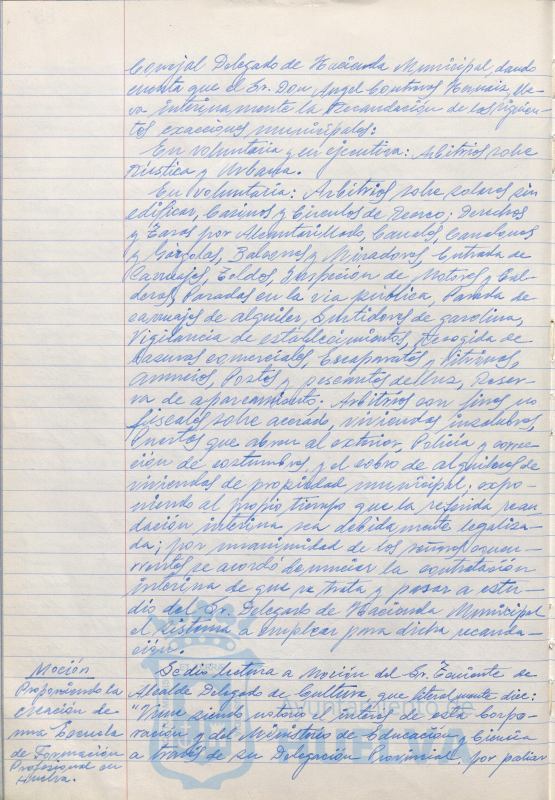 Concejal Delegado de Hacienda Municipal, dando
cuenta que el Sr. Don Angel Contreras Hernaiz, lle-
va interinamente la Recaudación de las siguien-
tes exacciones municipales:
En voluntaria y en ejecutiva: Arbitrios sobre
Rústica y Urbana.
En voluntaria: Arbitrios sobre solares sin
edificar, Casinos y Círculos de Recreo; Derechos
y Tasas por Alcantarillado, Canales, Canalones
y Gárgolas, Balcones y Miradores, Entrada de
Carruajes, Toldos, Inspección de Motores y Cal-
deras, Paradas en la vía pública, Parada de
carruajes de alquiler, Surtidores de gasolina,
Vigilancia de establecimientos, Recogida de
basuras comerciales, Escaparates y Vitrinas,
Anuncios, Postes y de luz, Reser-
va de aparcamiento. Arbitrios con fines no
fiscales sobre acerado, viviendas insalubres,
Puertas que abren al exterior, Policía y correc-
ción de costumbres, y el cobro de alquileres de
viviendas de propiedad municipal: expo-
niendo al propio tiempo que la referida recau-
dación interina sea debidamente legaliza-
da; por unanimidad de los señores concu-
rrentes se acordó denunciar la contratación
interina de que se trata y pasar a estu-
dio del Sr. Delegado de Hacienda Municipal
el sistema a emplear para dicha recauda-
ción.
Moción
Proponiendo la
creación de
una Escuela
de Formación
Profesional en
Huelva.
Se dió lectura a Moción del Sr. Teniente de
Alcalde Delegado de Cultura, que literalmente dice:
"Viene siendo notorio el interés de esta Corpo-
ración y del Ministerio de Educación y Ciencia
a través de su Delegación Provincial, por paliar
Ayuntamiento de
HUELVA